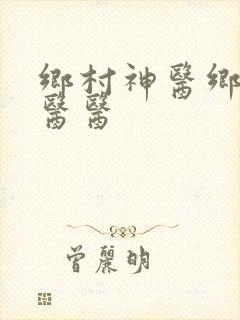 鄉村神醫鄉
醫醫
曾麗明